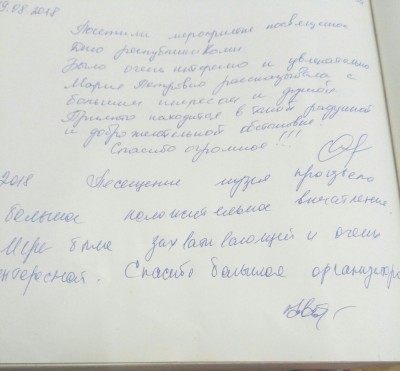 9.08.2018
Посетили мероприятие посвященное
Дню республики Коми.
Было очень интересно и увлекательно
Мария Петровна рассказывала с
большим интересом и душой
Приятно находится в такой радушной
и доброжелательной обстановке
Спасибо огромное!!!
2018 Посещение музея произвело
большое положительное впечатление
была захватывающей и очень
нтересной. Спасибо большое организатора